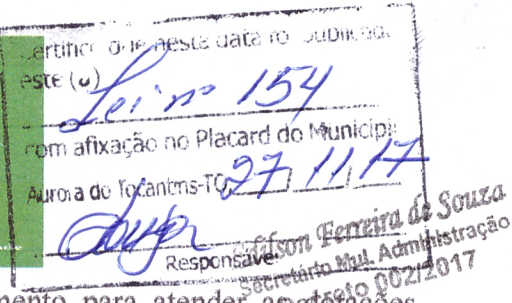 Certifico que nesta data foi publicado
este (a)
Lei nº 154
com afixação no Placard do Municipi
Aurora do Tocantins-TO, 27/11/17
Responsável
Ferreira de Souza
Secretário Mul. Administração
002/2017
mento para atender